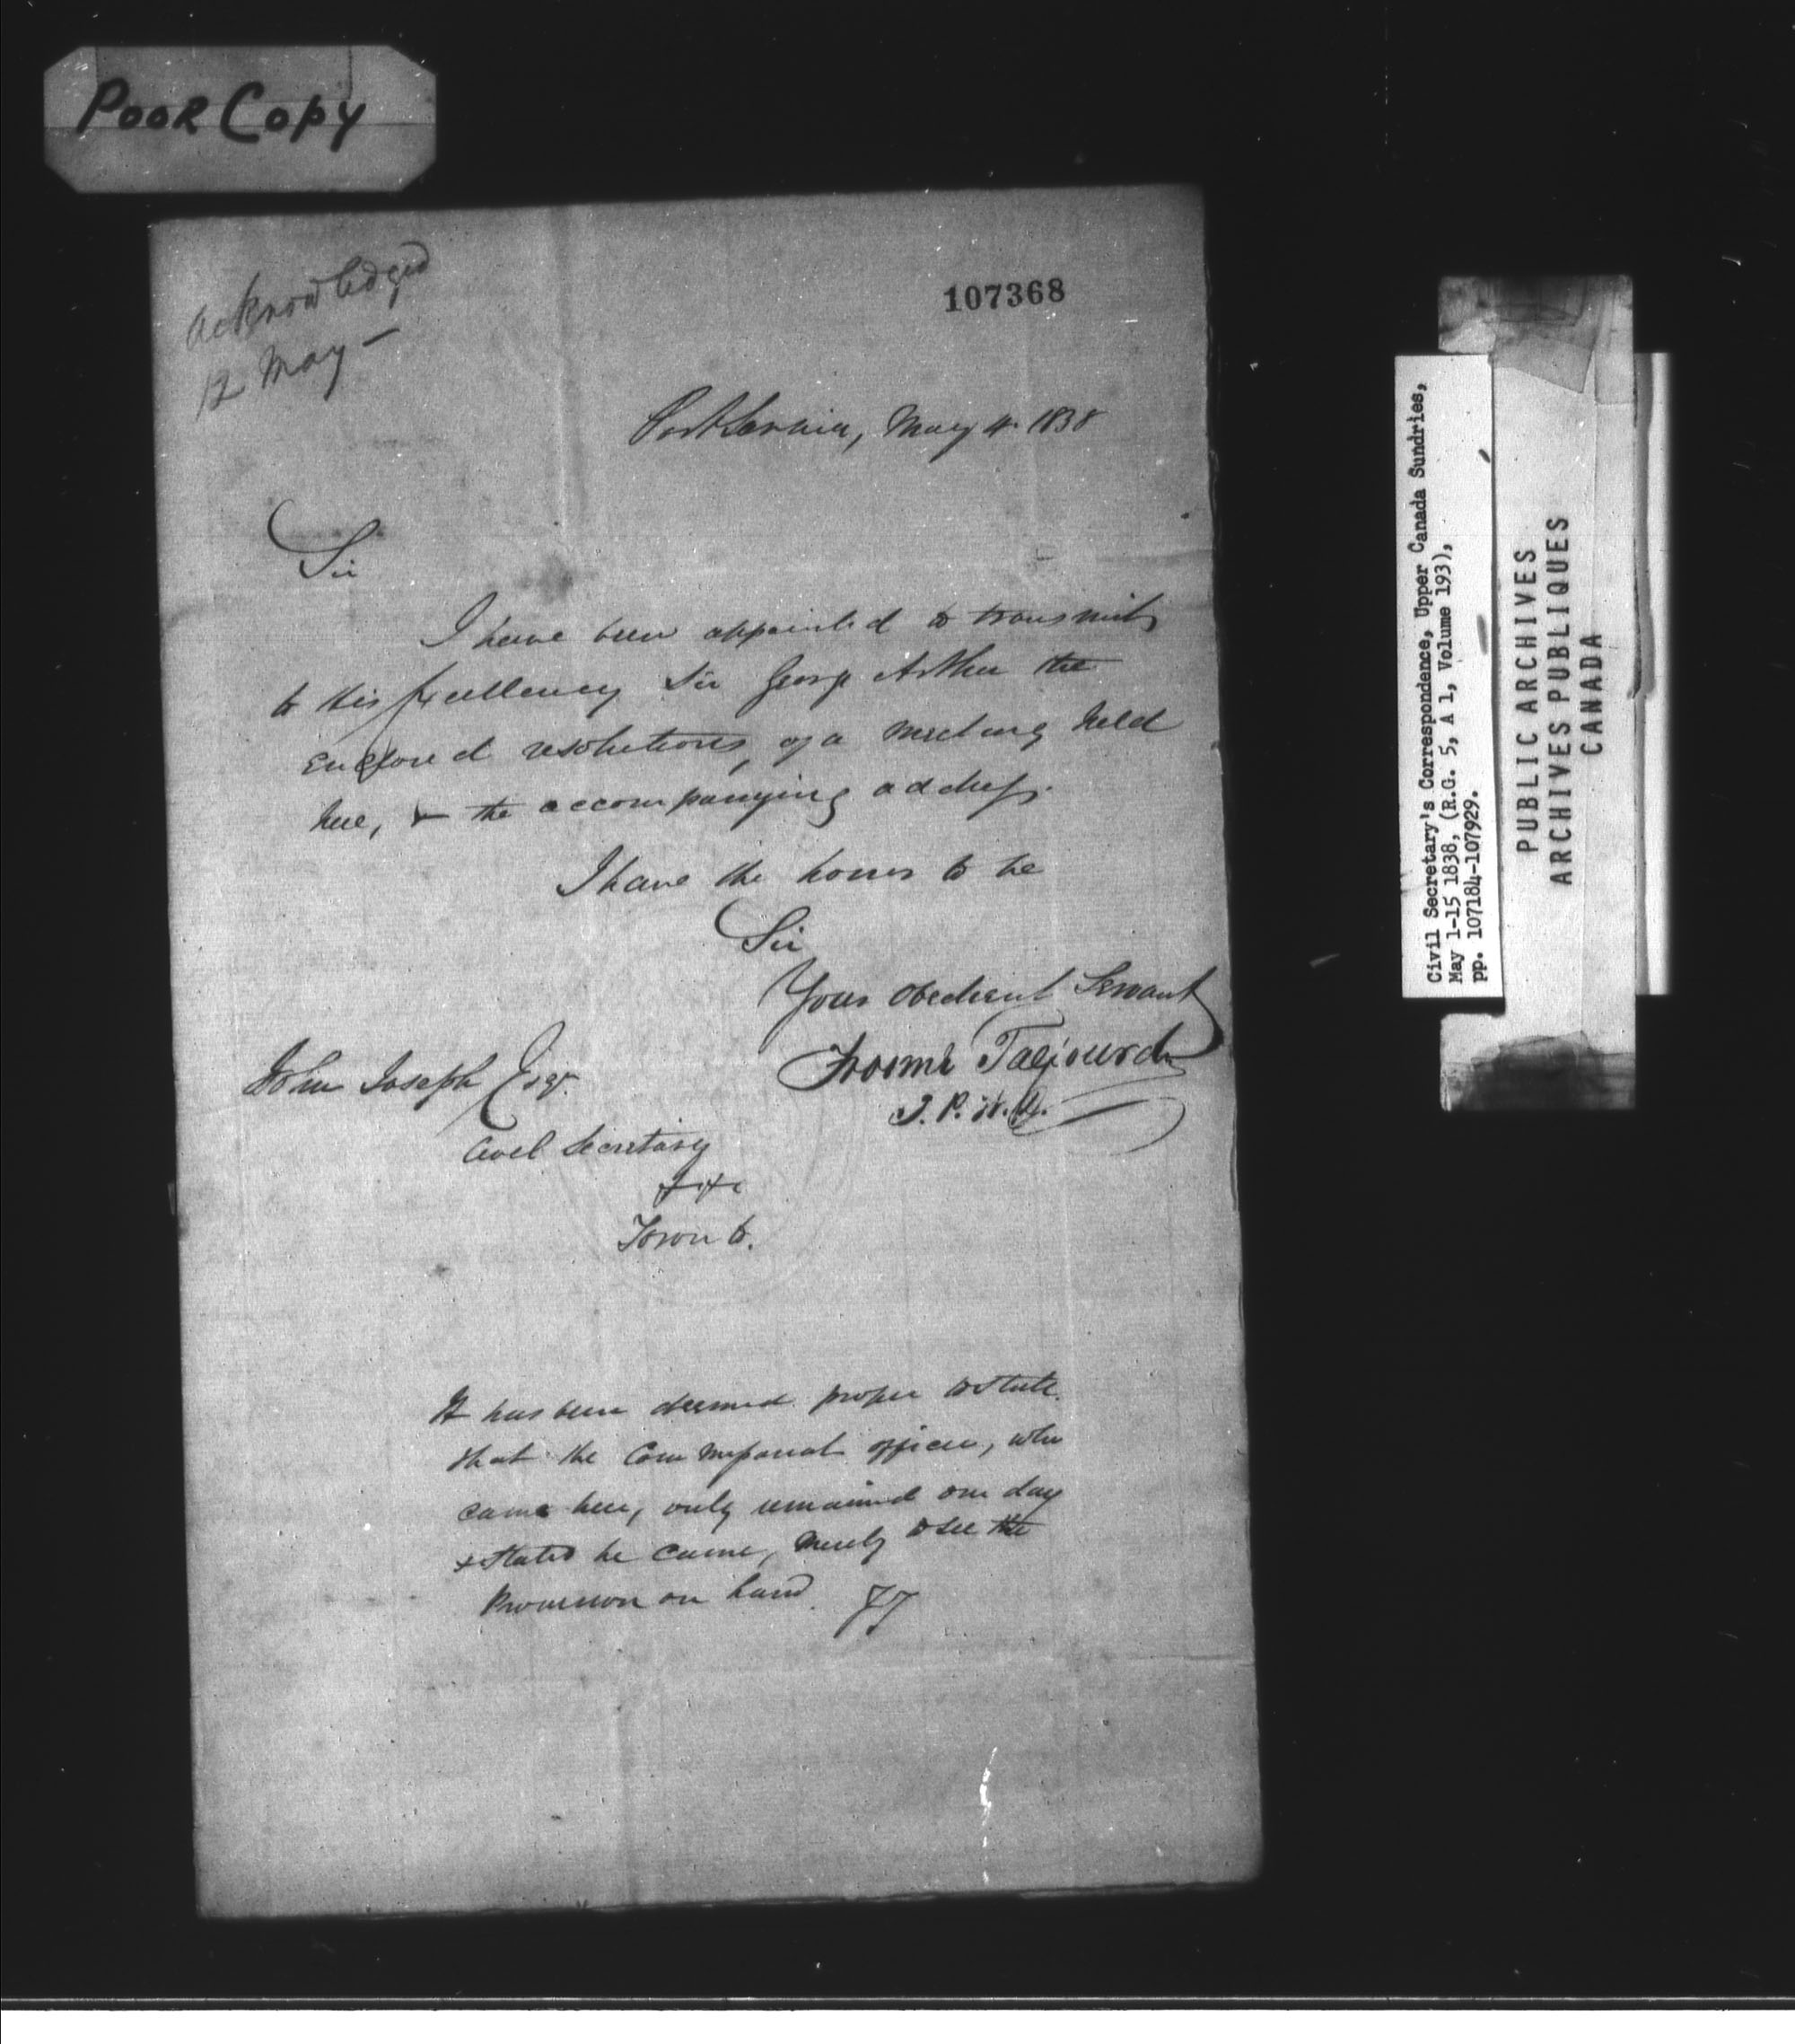 POOR COPY
Acknowledged
12 May –
107368
Port Sarnia, May 4. 1838
Sir
I have been appointed to transmit
to His Excellency Sir George Arthur the
enclosed resolutions, of a meeting held
here, & the accompanying address.
I have the honor to be
Sir
Your obedient Servant
Froome Talfourd
J. P. W. D.
John Joseph Esqr.
Civil Secretary
&c &c
Toronto.
It has been deemed proper to state
that the Commissariat officer, who
came here, only remained one day
& stated he came, merely to see the
Provision on hand. FT
Civil Secretary's Correspondence, Upper Canada Sundries,
May 1-15 1838, (R.G. 5, A 1, Volume 193),
pp. 107184-107929.
PUBLIC ARCHIVES
ARCHIVES PUBLIQUES
CANADA